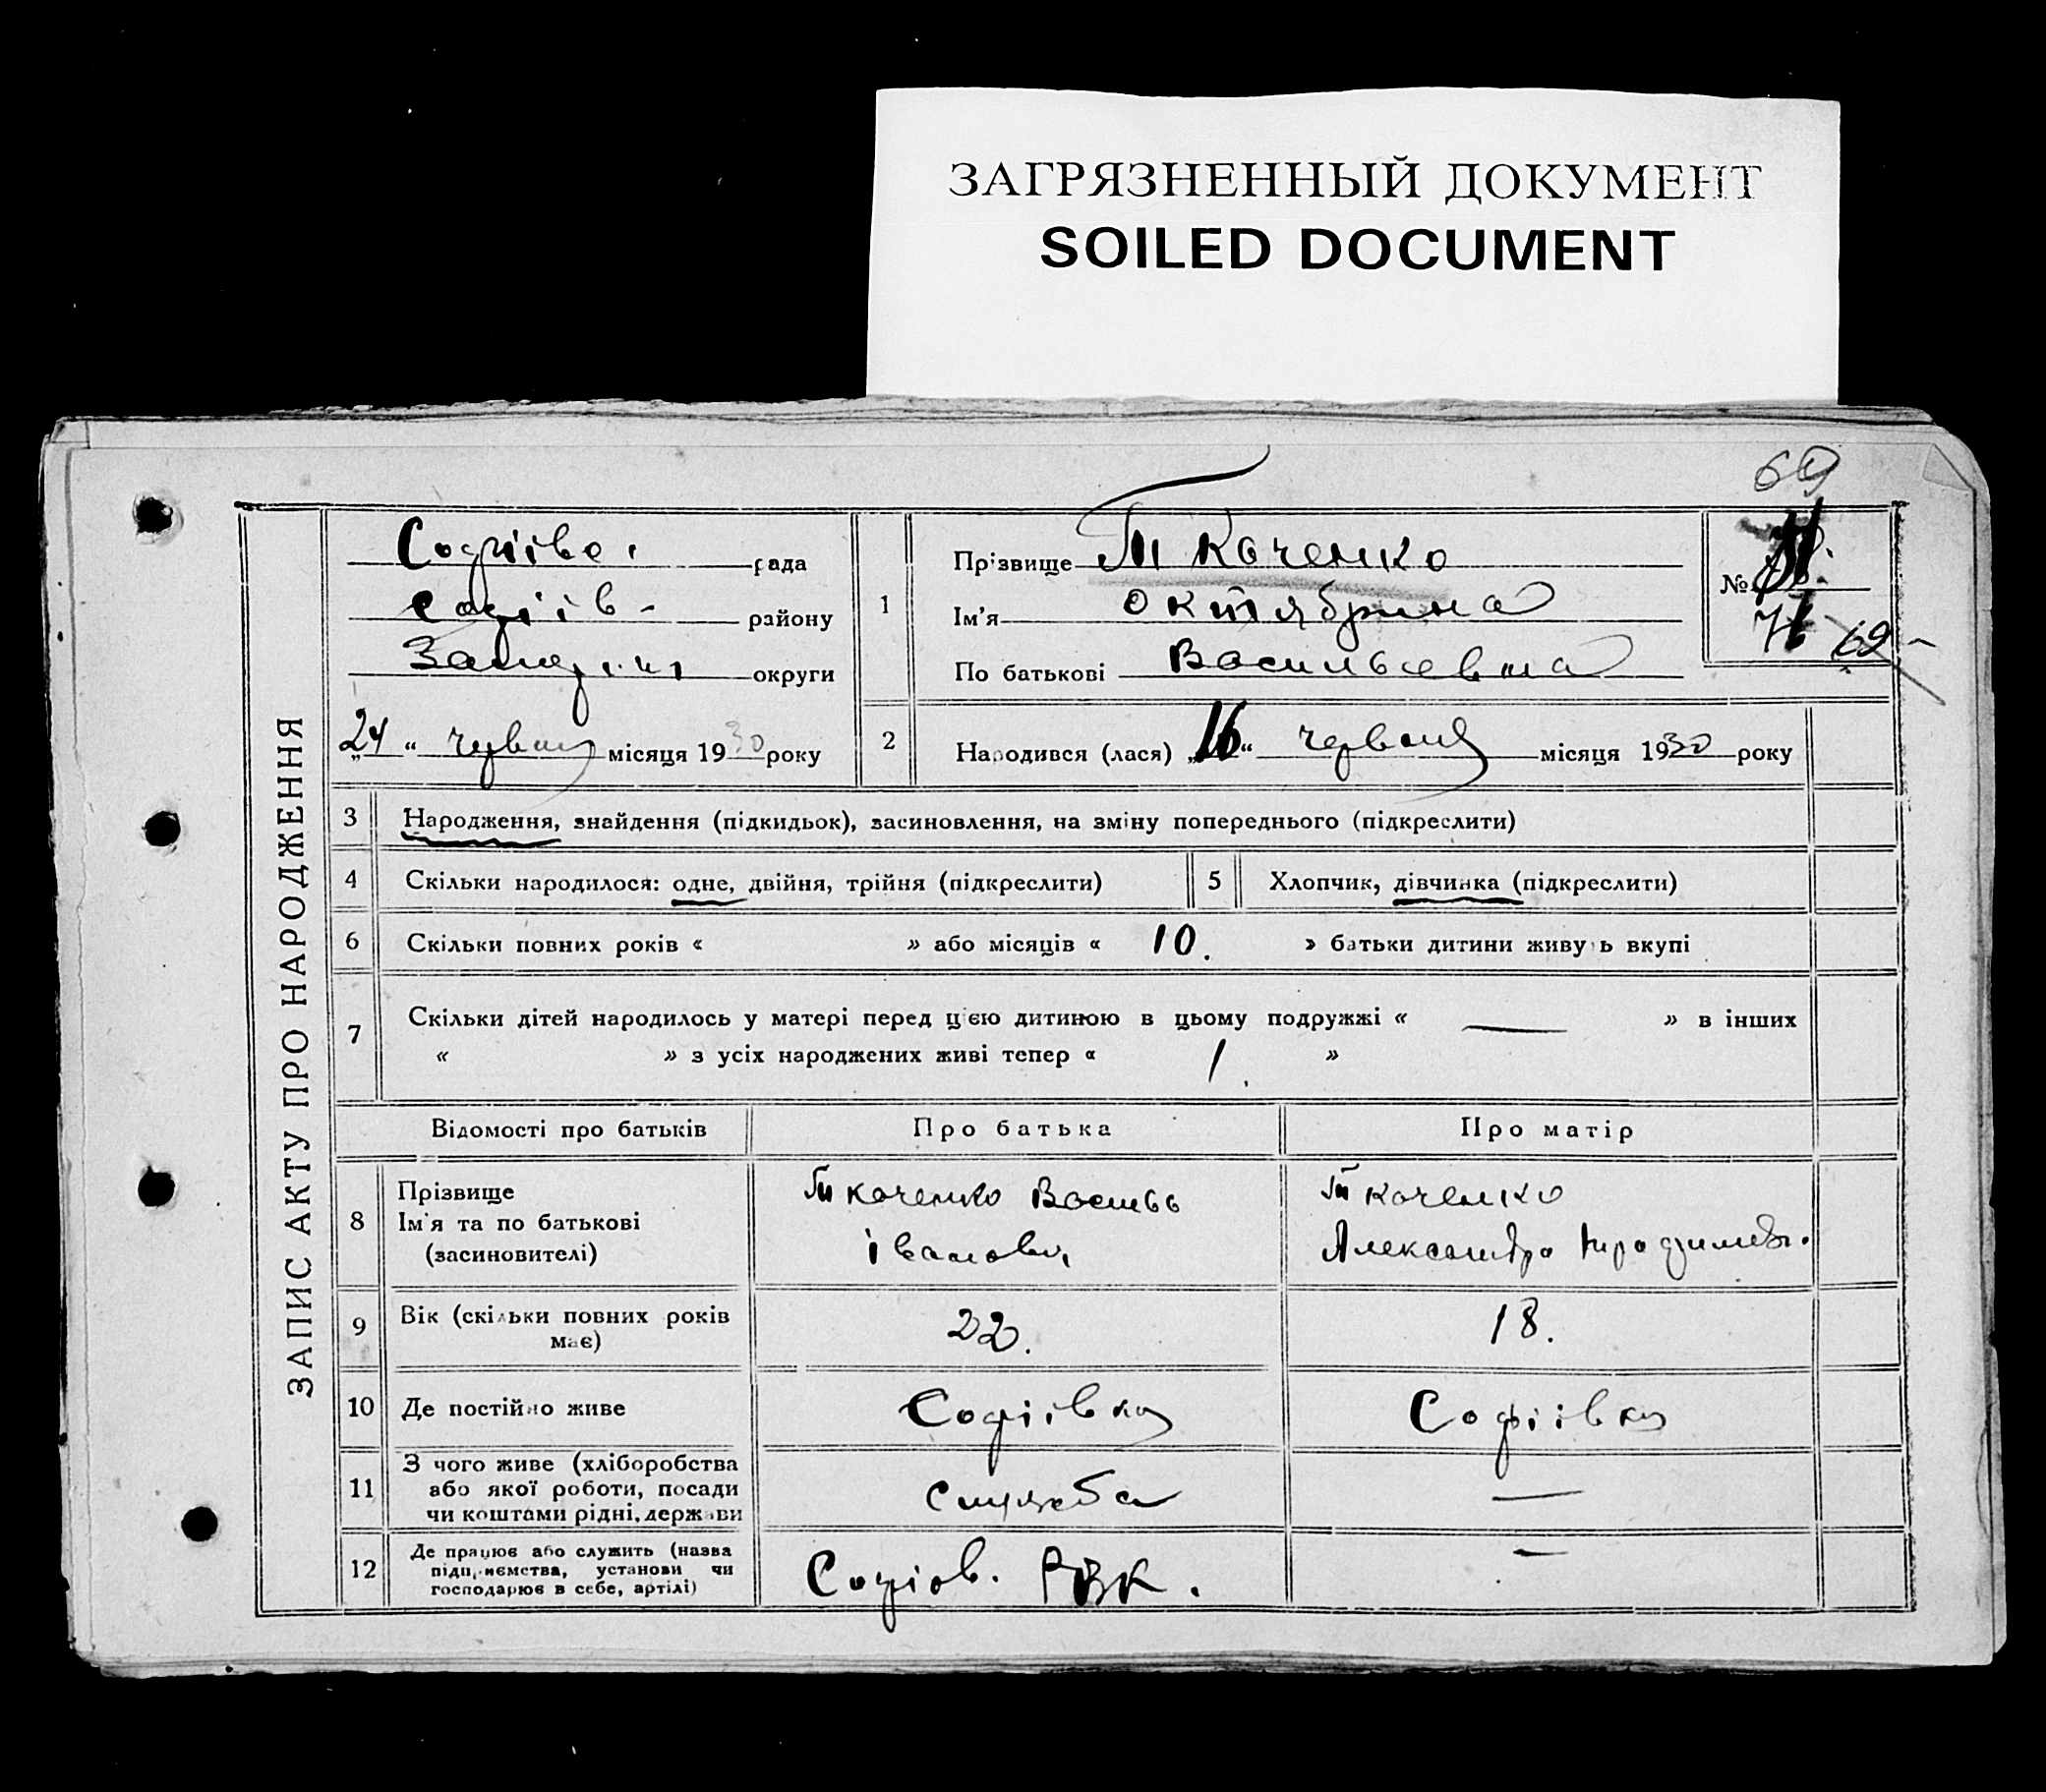 ЗАГРЯЗНЕННЫЙ ДОКУМЕНТ
SOILED DOCUMENT
69
ЗАПИС АКТУ ПРО НАРОДЖЕННЯ
рада
району
округи
24 " червня місяця 1930 року
1
Прізвище Ткаченко
Ім'я Октябрина
По батькові Васильевна
№
69
2 Народився (лася) „16“ червня місяця 1930 року
3 Народження, знайдення (підкидьок), засиновлення, на зміну попереднього (підкреслити)
4 Скільки народилося: одне, двійня, трійня (підкреслити)
5 Хлопчик, дівчинка (підкреслити)
6 Скільки повних років « » або місяців « 10. » батьки дитини живуть вкупі
7 Скільки дітей народилось у матері перед цією дитиною в цьому подружжі « — » в інших
« » з усіх народжених живі тепер « 1. »
Відомості про батьків Про батька Про матір
8 Прізвище Ткаченко Василь Ткаченко
Ім'я та по батькові
(засиновителі) Іванович Александра
9 Вік (скільки повних років має) 22. 18.
10 Де постійно живе Софіівка Софіівка
11 З чого живе (хліборобства
або якої роботи, посади служба —
чи коштами рідні, держави
12 Де працює або служить (назва —
підприємства, установи чи Софіов. РВК.
господарює в себе, артілі)